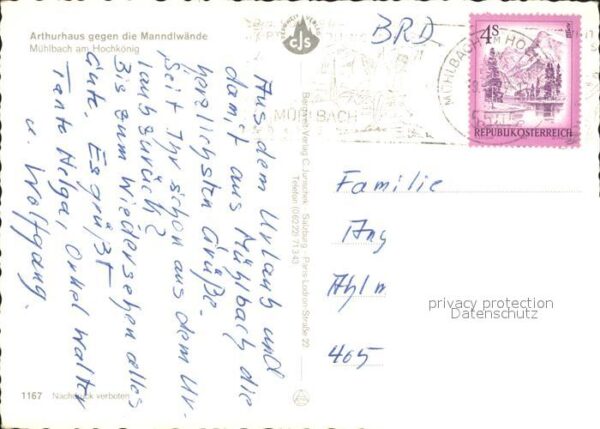 Arthurhaus gegen die Manndlwände
Mühlbach am Hochkönig
BRD
MÜHLBACH AM HO
MÜHLBACH
4S
REPUBLIK ÖSTERREICH
CJS
Aus dem Urlaub und
damit aus Mühlbach die
herzlichsten Grüße.
Seit Ihr schon aus dem Ur-
laub zurück?
Bis zum Wiedersehen alles
Gute. Es grüßt
Tante Helga, Onkel Walter
u. Wolfgang.
Bergwelt Verlag C. Jurischek · Salzburg · Paris-Lodron-Straße 22
Telefon (06222) 71343
Familie
Ang
Ahln
465
privacy protection
Datenschutz
1167 Nachdruck verboten